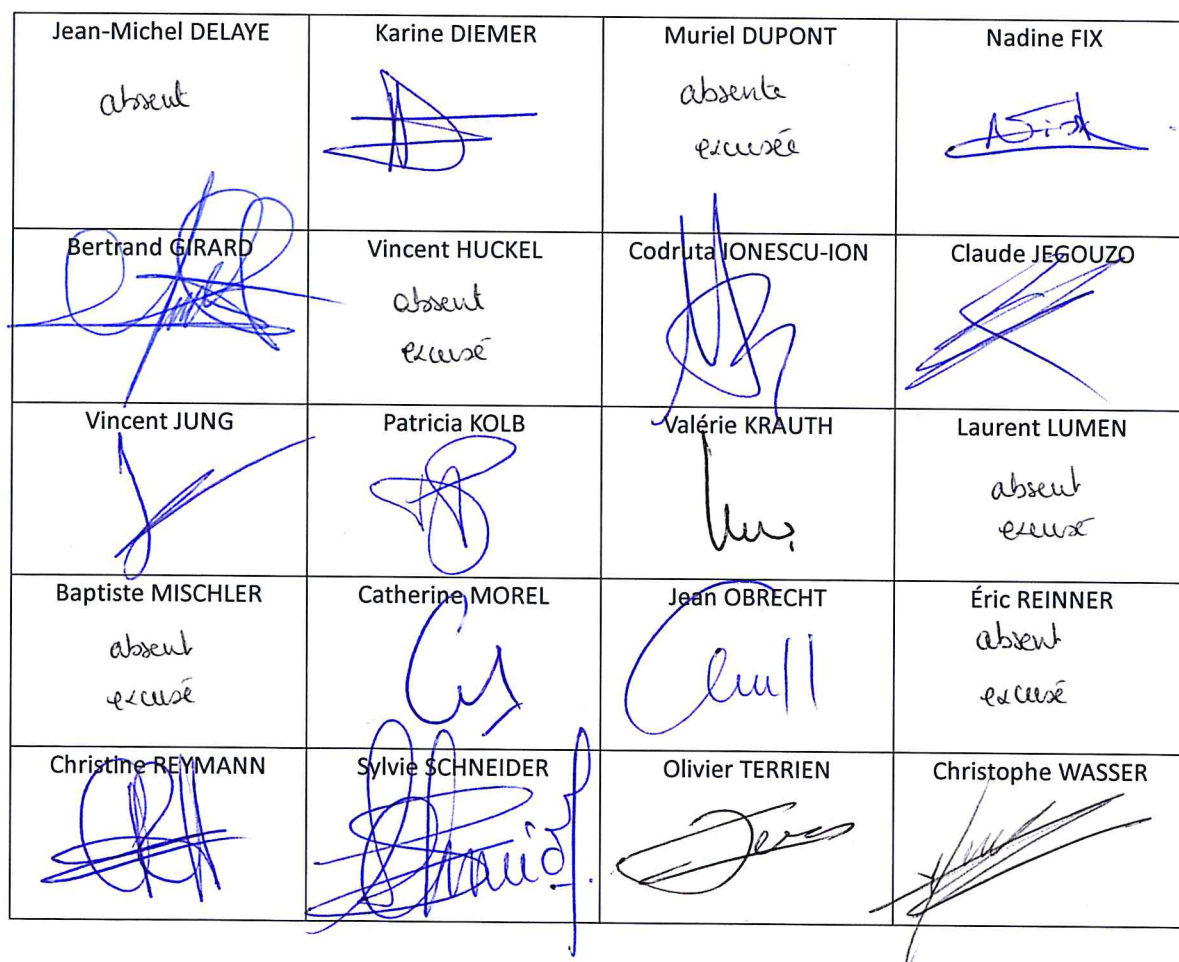 Jean-Michel DELAYE
absent
Karine DIEMER
Muriel DUPONT
absente
excusée
Nadine FIX
Bertrand GIRARD
Vincent HUCKEL
absent
excusé
Codruta IONESCU-ION
Claude JEGOUZO
Vincent JUNG
Patricia KOLB
Valérie KRAUTH
Laurent LUMEN
absent
excusé
Baptiste MISCHLER
absent
excusé
Catherine MOREL
Jean OBRECHT
Éric REINNER
absent
excusé
Christine REYMANN
Sylvie SCHNEIDER
Olivier TERRIEN
Christophe WASSER